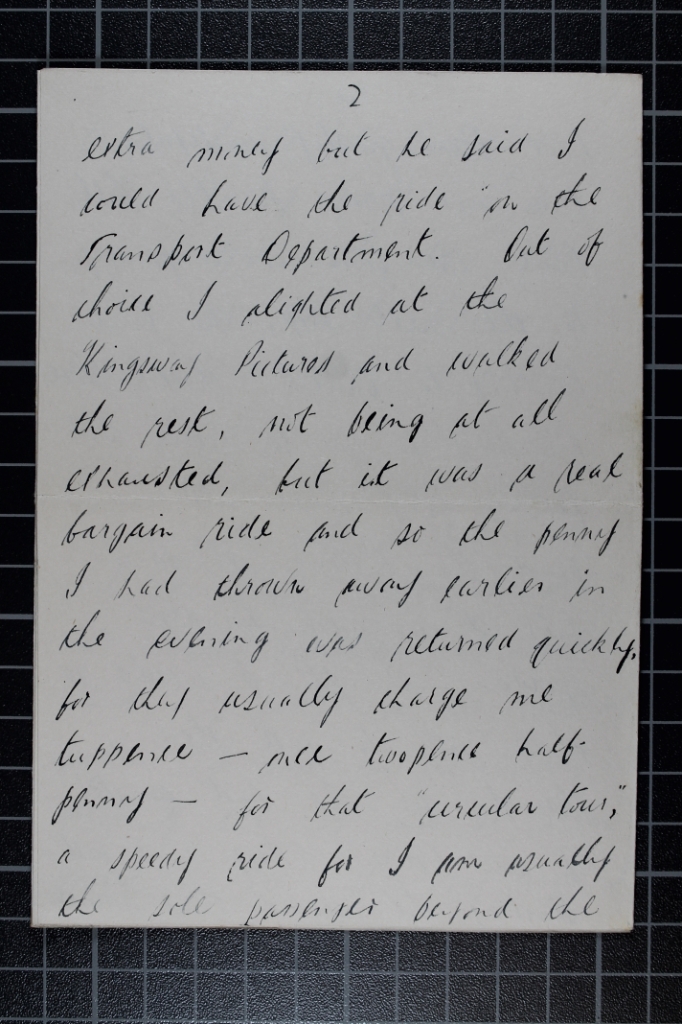 2
extra money but he said I
could have the ride "on the
Transport Department. Out of
choice I alighted at the
Kingsway Pictures and walked
the rest, not being at all
exhausted, but it was a real
bargain ride and so the penny
I had thrown away earlier in
the evening was returned quickly,
for they usually charge me
tuppence — once twopence half-
penny — for that "circular tour,"
a speedy ride for I am usually
the sole passenger beyond the